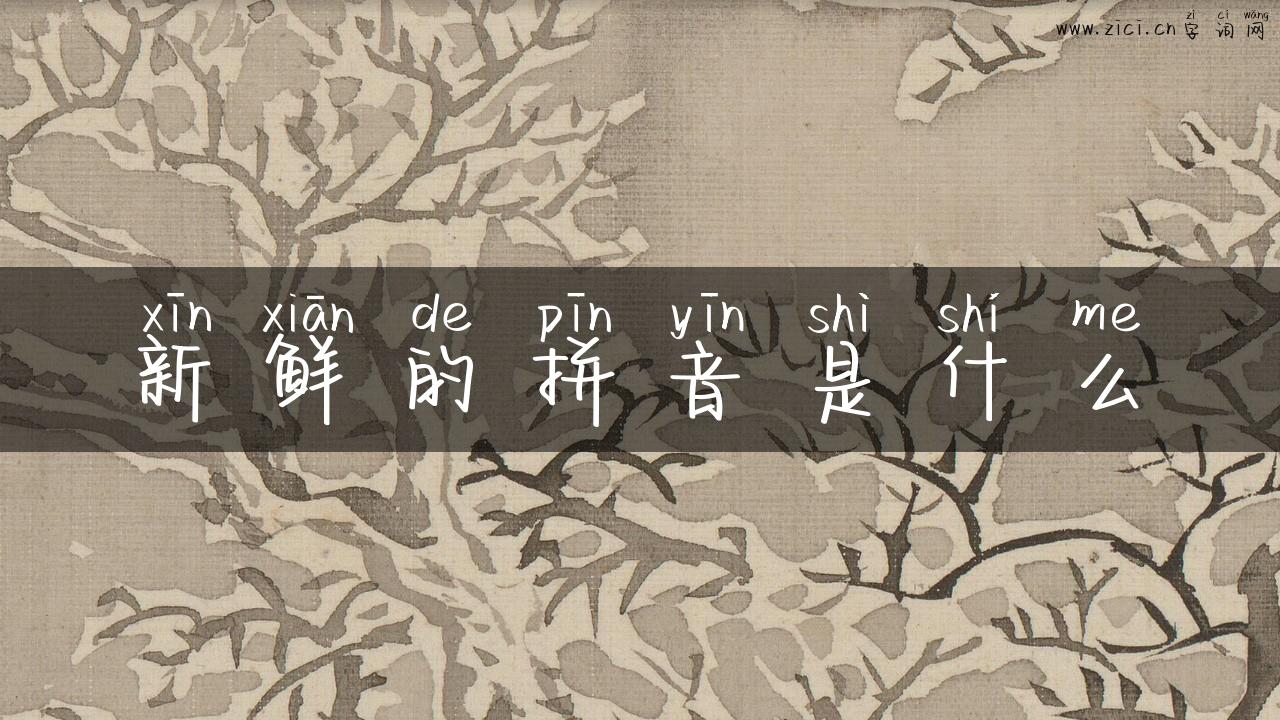 zì cí wǎng
www.zici.cn 字 词 网
xīn xiān de pīn yīn shì shí me
新 鲜 的 拼 音 是 什 么